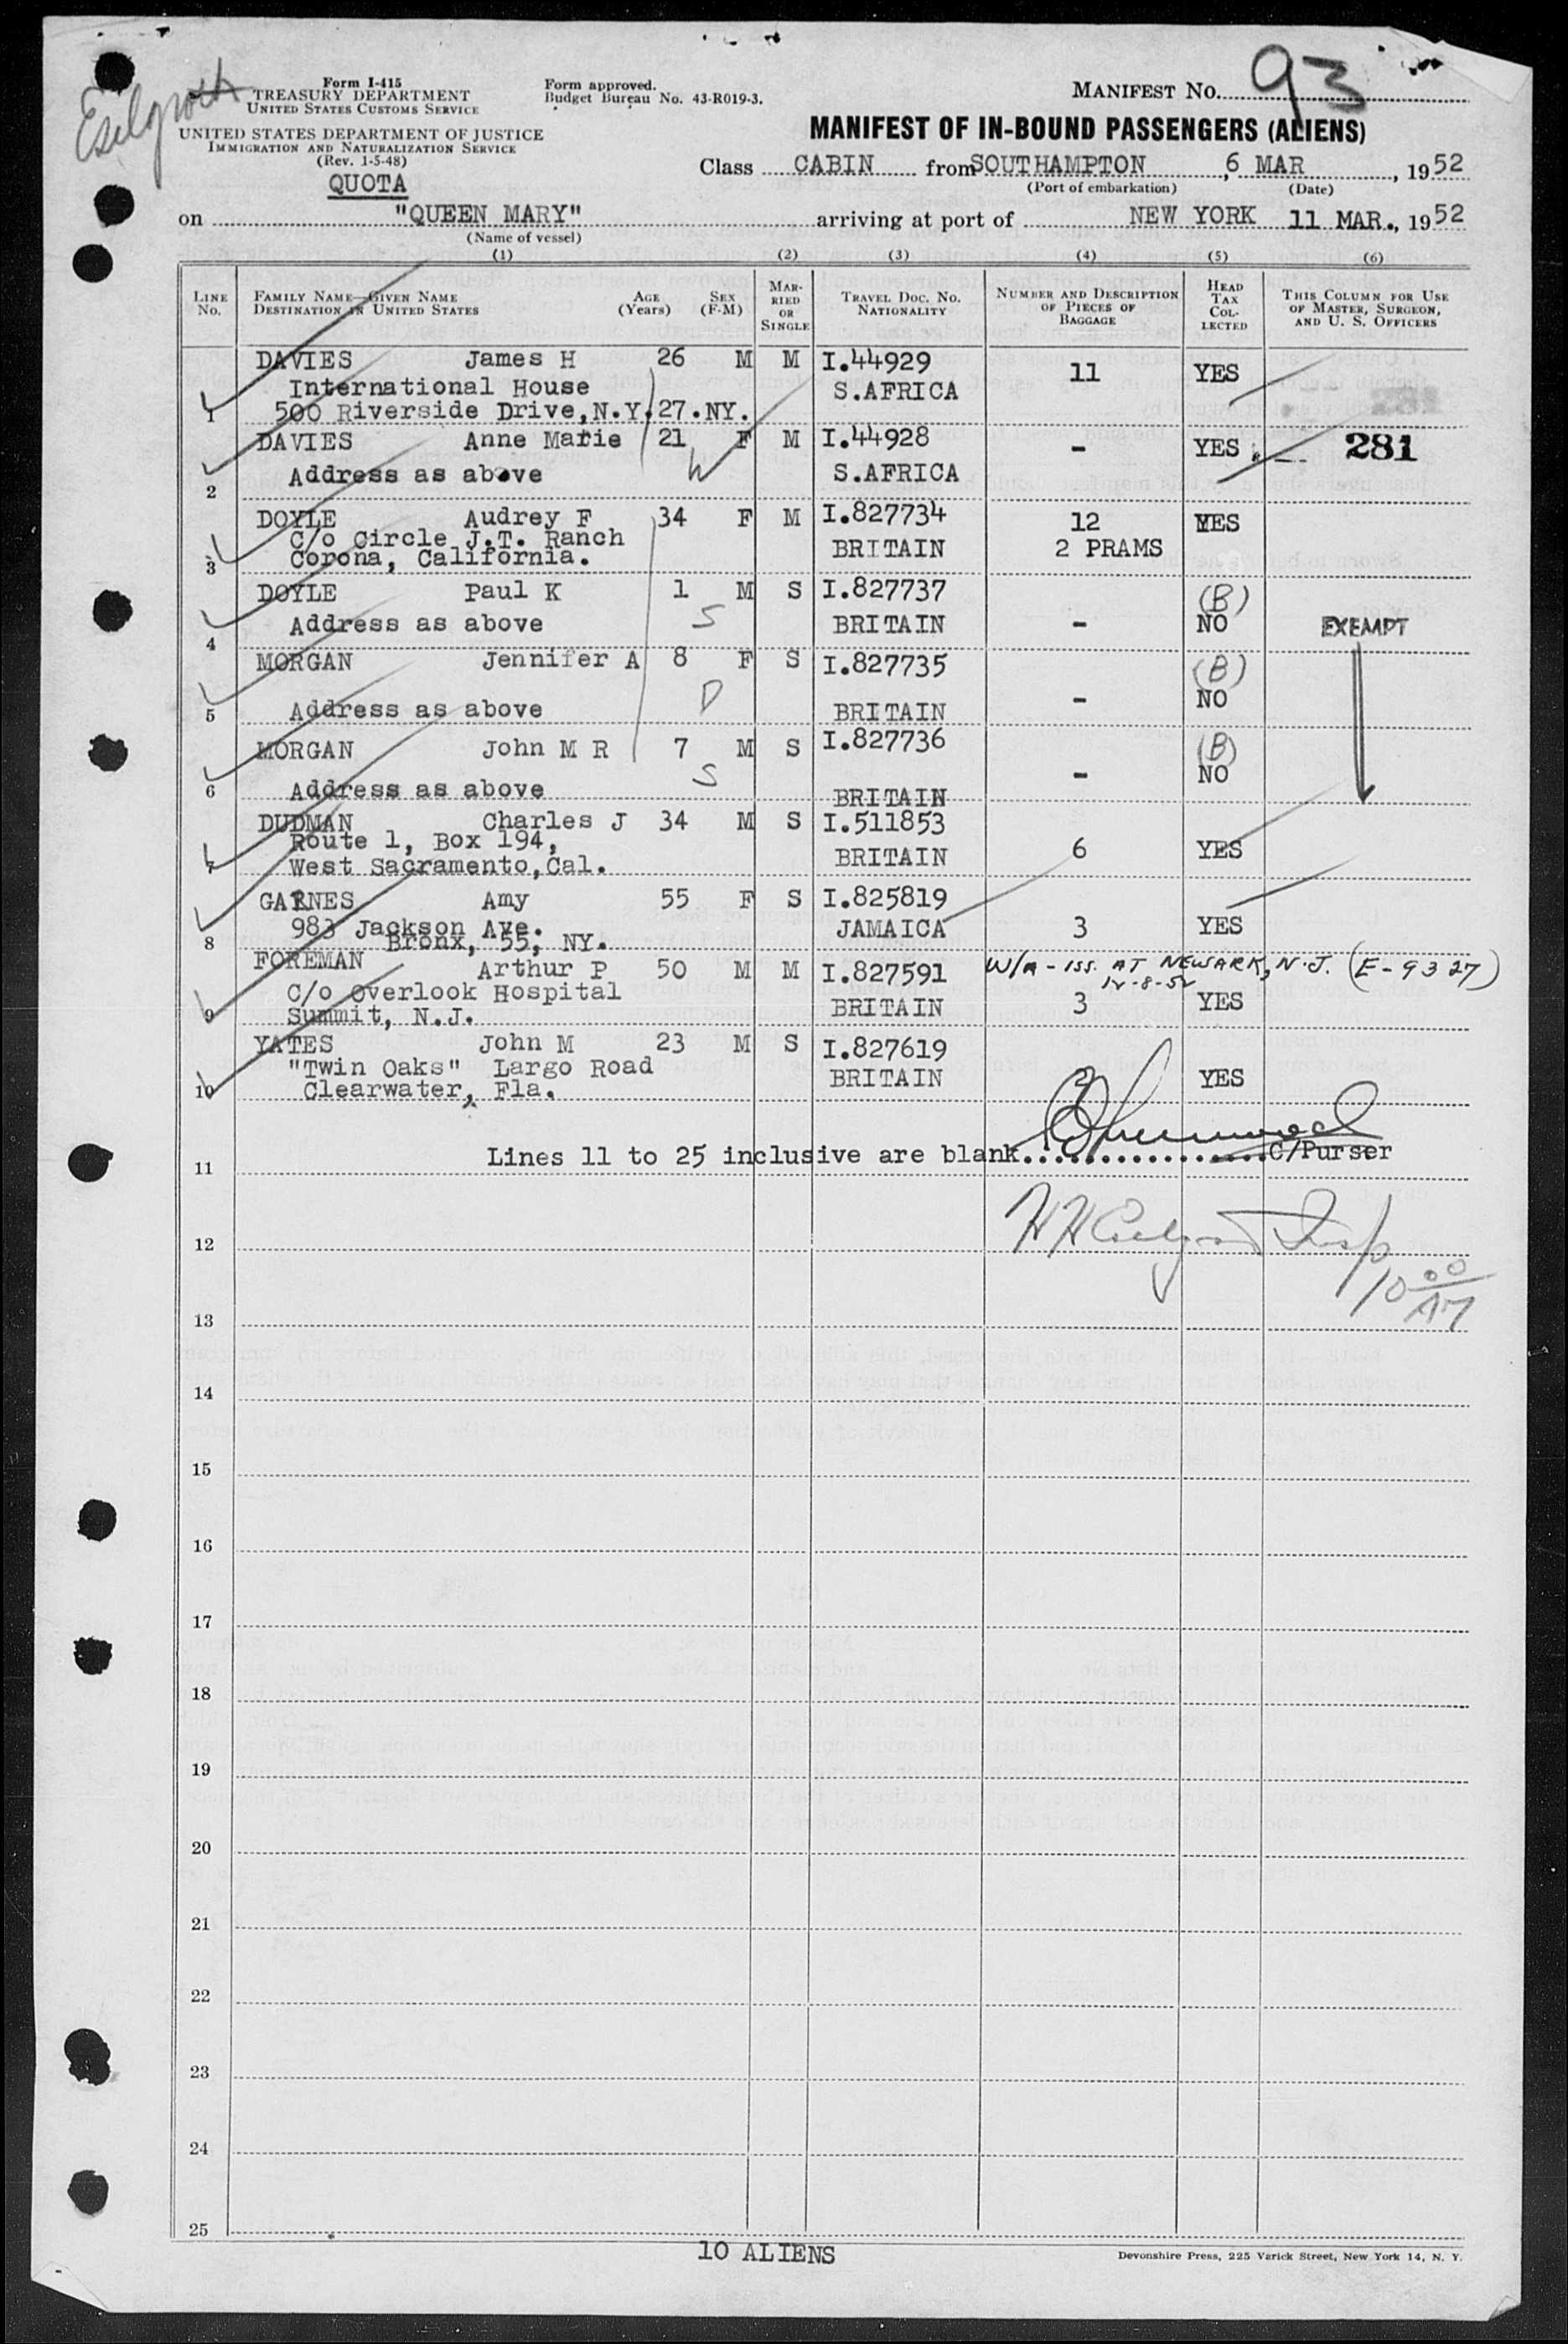 Form I-415
TREASURY DEPARTMENT
UNITED STATES CUSTOMS SERVICE
UNITED STATES DEPARTMENT OF JUSTICE
IMMIGRATION AND NATURALIZATION SERVICE
(Rev. 1-5-48)
QUOTA
Form approved.
Budget Bureau No. 43-R019-3.
MANIFEST NO. 93
MANIFEST OF IN-BOUND PASSENGERS (ALIENS)
Class CABIN from SOUTHAMPTON, 6 MAR, 1952
(Port of embarkation) (Date)
on "QUEEN MARY" arriving at port of NEW YORK 11 MAR., 1952
(Name of vessel)
(1) (2) (3) (4) (5) (6)
LINE NO. FAMILY NAME—GIVEN NAME DESTINATION IN UNITED STATES AGE (Years) SEX (F-M) MARRIED OR SINGLE TRAVEL DOC. NO. NATIONALITY NUMBER AND DESCRIPTION OF PIECES OF BAGGAGE HEAD TAX COLLECTED THIS COLUMN FOR USE OF MASTER, SURGEON, AND U. S. OFFICERS
DAVIES James H 26 M M I.44929 11 YES
International House S.AFRICA
1 500 Riverside Drive,N.Y.27.NY.
DAVIES Anne Marie 21 F M I.44928 - YES 281
Address as above W S.AFRICA
2
DOYLE Audrey F 34 F M I.827734 12 YES
C/o Circle J.T. Ranch BRITAIN 2 PRAMS
3 Corona, California.
DOYLE Paul K 1 M S I.827737 (B)
Address as above S BRITAIN - NO EXEMPT
4
MORGAN Jennifer A 8 F S I.827735 (B)
- NO
5 Address as above D BRITAIN
MORGAN John M R 7 M S I.827736 (B)
S - NO
6 Address as above BRITAIN
DUDMAN Charles J 34 M S I.511853
Route 1, Box 194, BRITAIN 6 YES
7 West Sacramento,Cal.
GARNES Amy 55 F S I.825819
983 Jackson Ave. JAMAICA 3 YES
8 Bronx, 55, NY.
FOREMAN Arthur P 50 M M I.827591 W/A - ISS. AT NEWARK, N.J. (E-9327)
12-8-52
C/o Overlook Hospital BRITAIN 3 YES
9 Summit, N.J.
YATES John M 23 M S I.827619
"Twin Oaks" Largo Road BRITAIN 2 YES
10 Clearwater, Fla.
11 Lines 11 to 25 inclusive are blank. C/Purser
12 Insp
13 10 00 AM
14
15
16
17
18
19
20
21
22
23
24
25
10 ALIENS
Devonshire Press, 225 Varick Street, New York 14, N. Y.